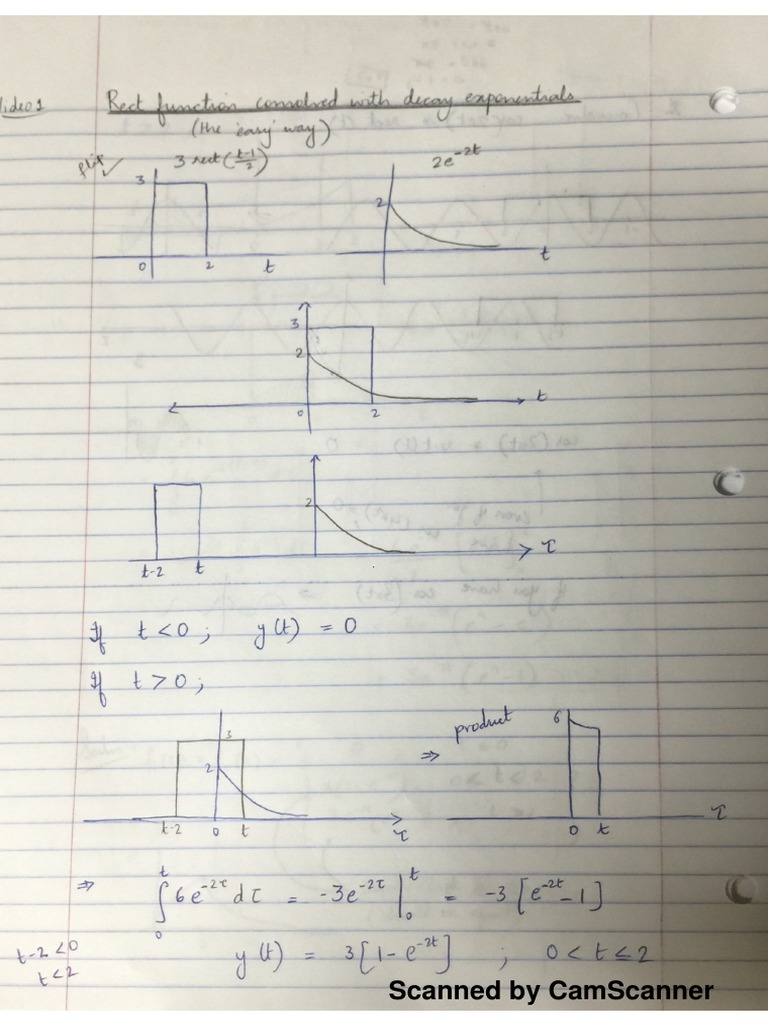 Rect function convolved with decay exponentials
(the 'easy' way)
flip ✓
3 rect(t-1/2)
2e^-2t
3
0 2 t
2
t
3
2
0 2
t
2
t-2 t
τ
If t < 0 ; y(t) = 0
If t > 0 ;
3
2
t-2 0 t
τ
⇒
product
6
0 t
τ
⇒ ∫₀ᵗ 6e^-2τ dτ = -3e^-2τ |₀ᵗ = -3 [e^-2t - 1]
t-2 < 0
t < 2
y(t) = 3[1 - e^-2t] ; 0 < t ≤ 2
Scanned by CamScanner